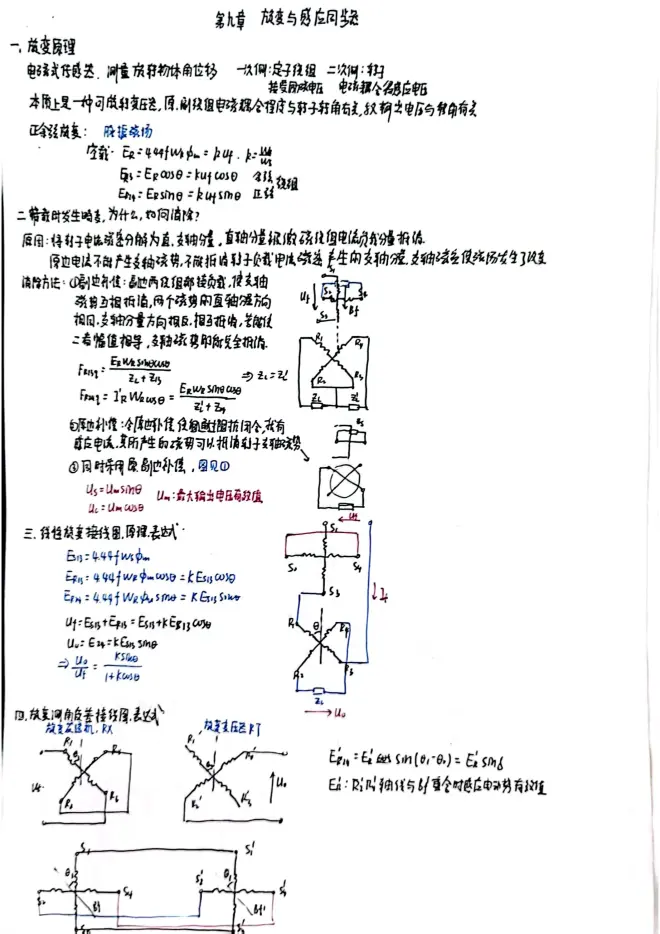 第九章 旋变与感应同步器
一、旋变原理
电磁式传感器、测量旋转物体角位移 一次侧:定子绕组 二次侧:转子
接受励磁电压 电磁耦合无感应电压
本质上是一种可旋转变压器,原、副绕组电磁耦合程度与转子转角有关,故输出电压与转角有关
正余弦旋变: 脉振磁场
空载: E_R=4.44fW_Rφ_m=kU_f. k=W_R/W_S
E_R13=E_Rcosθ=kU_fcosθ 余弦
E_R24=E_Rsinθ=kU_fsinθ 正弦
绕组
二、带载时发生畸变,为什么,如何消除?
原因:将转子电流磁势分解为直、交轴分量,直轴分量被励磁绕组电流负载分量抵消.
原边电流不能产生交轴磁势,不能抵消转子负载电流磁势产生的交轴分量,交轴磁势使磁场发生了改变
消除方法:①副边补偿:副边两绕组都接负载,使交轴
磁势互相抵消,两个磁势的直轴分量方向
相同,交轴分量方向相反,相互抵消,若能使
二者幅值相等,交轴磁势即能完全抵消.
F_R13q=E_RW_Rsinθcosθ/(Z_L+Z_13) ⇒ Z_L=Z_L'
F_R24q=I_R'W_Rcosθ=E_RW_Rsinθcosθ/(Z_L'+Z_24)
②原边补偿:令原边补偿绕组通过阻抗闭合,就有
感应电流,其所产生的磁势可以抵消转子交轴磁势
③同时采用原副边补偿,图见①
U_s=U_msinθ U_m:最大输出电压有效值
U_c=U_mcosθ
三、线性旋变接线图、原理、表达式
E_S13=4.44fW_Sφ_m
E_R13=4.44fW_Rφ_mcosθ=KE_S13cosθ
E_R24=4.44fW_Rφ_msinθ=KE_S13sinθ
U_f=E_S13+E_R13=E_S13+KE_S13cosθ
U_o=E_24=KE_S13sinθ
⇒ U_o/U_f=Ksinθ/(1+Kcosθ)
四、旋变测角度差接线图、表达式
旋变发送机,RX 旋变变压器 RT
E'_R24=E'_R sin(θ_1-θ_2)=E'_R sinδ
E'_R:R_2'R_4'轴线与B_f'重合时感应电动势有效值